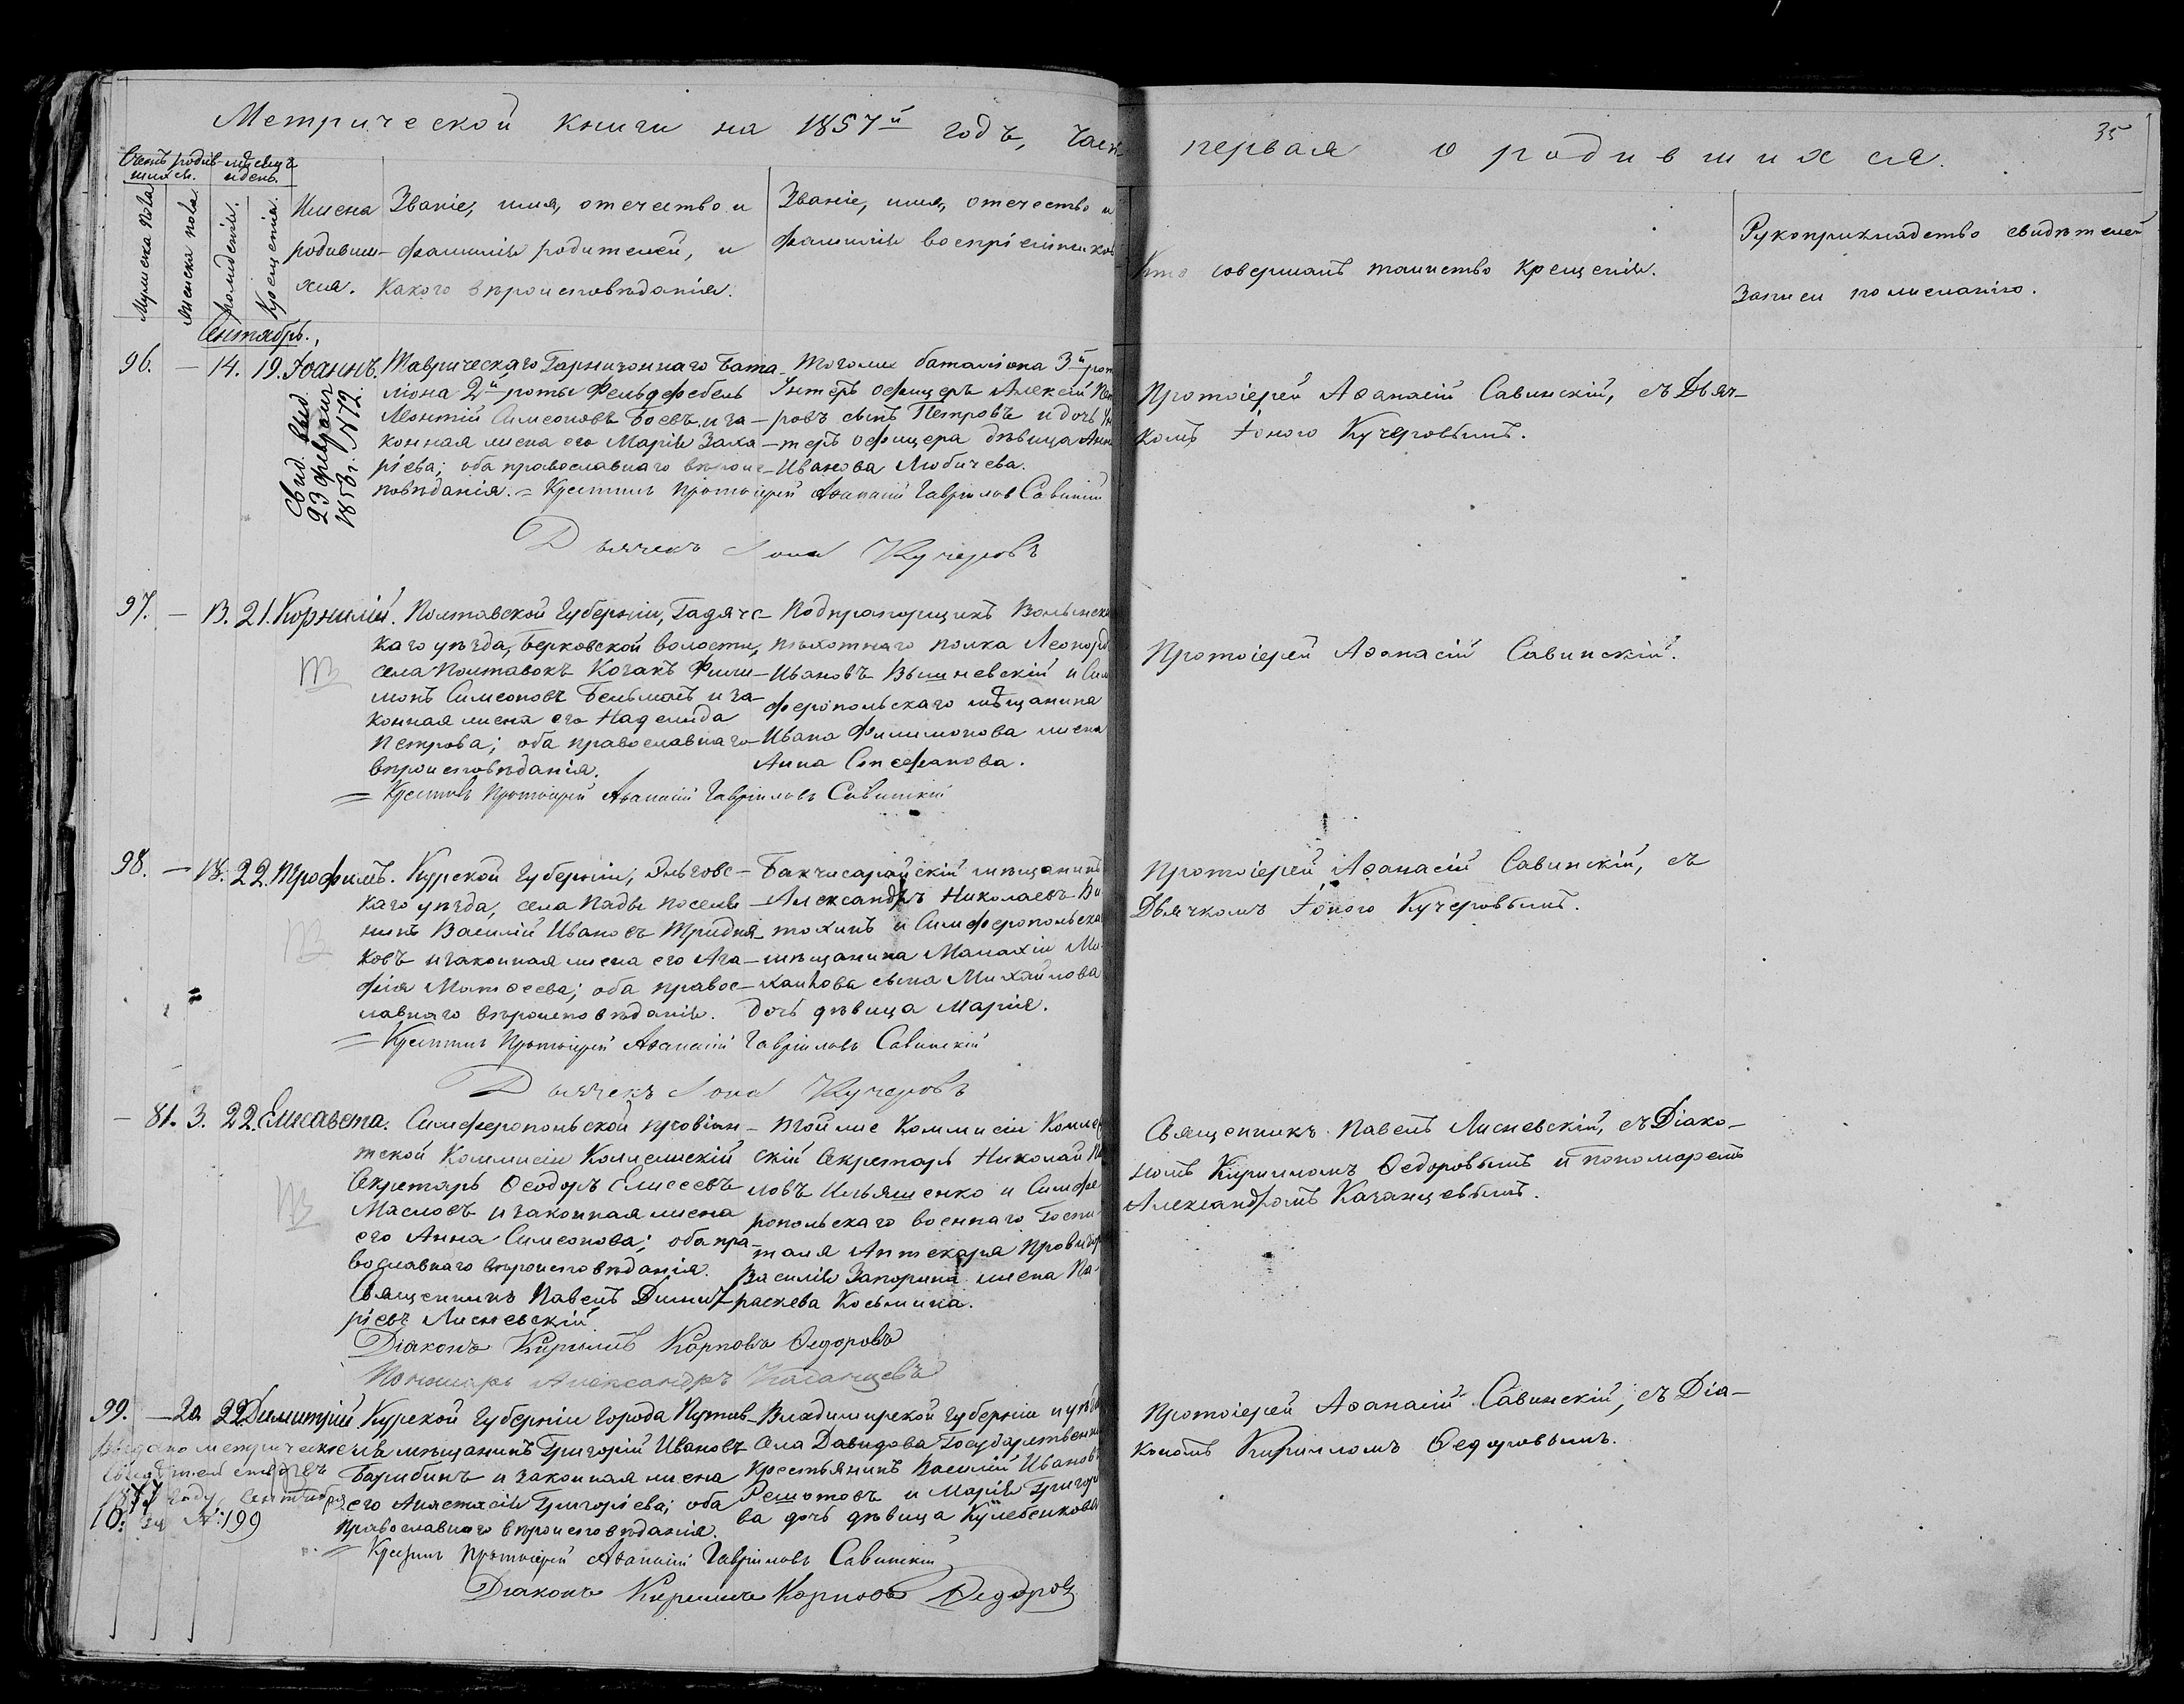 Метрической книги на 1857й годъ, част первая о родившихся.
35
Счетъ родив-шихся.
Мѣсяцъ и день.
Мужеска пола
Женска пола.
Рожденія.
Крещенія.
Имена
родивши-
хся.
Званіе, имя, отечество и
фамилія родителей, и
какого вѣроисповѣданія.
Званіе, имя, отечество и
фамилія воспріемников
Кто совершалъ таинство крещенія.
Рукоприкладство свидѣтелей
записи по желанію.
Сентябрь.
96. — 14. 19. Іоаннъ.
Свид. выд.
23 февраля
185 г. №72.
Таврическаго Гарнизоннаго Бата-
ліона 2й роты Фельдфебель
Леонтій Симеоновъ Боевъ и за-
конная жена его Марія Заха-
ріева; оба православнаго вѣроис-
повѣданія. = Крестилъ Протоіерей Аѳанасій Гавріиловъ Савинскій
Тогоже баталіона 3й рот
Унтеръ офицеръ Алексѣй Пет
ровъ сынъ Петровъ и дочь Ун
теръ офицера дѣвица Анна
Иванова Любичева.
Дьячекъ Іона Кучеровъ
Протоіерей Аѳанасій Савинскій, съ Дьяч-
комъ Іоною Кучеровымъ.
97. — 13. 21. Корнилій.
Полтавской Губерніи, Гадячс-
каго уѣзда, Берковской волости,
села Полтавокъ Козакъ Фили-
монъ Симеоновъ Бельмасъ и за-
конная жена его Надежда
Петрова; оба православнаго
вѣроисповѣданія.
= Крестилъ Протоіерей Аѳанасій Гавріиловъ Савинскій
Подпрапорщикъ Волынска
пѣхотнаго полка Леонард
Ивановъ Вышневскій и Сим
феропольскаго мѣщанина
Ивана Филимонова жена
Анна Стефанова.
Протоіерей Аѳанасій Савинскій.
98. — 18. 22. Трофимъ.
Курской Губерніи, Льговс-
каго уѣзда, села Пады поселя-
нинъ Василій Ивановъ Тридня-
ковъ и законная жена его Ага-
фія Матѳеева; оба правос-
лавнаго вѣроисповѣданія.
= Крестилъ Протоіерей Аѳанасій Гавріиловъ Савинскій
Бакчисарайскій мѣщанинъ
Александръ Николаевъ Ви
тохинъ и Симферопольска
мѣщанина Малахіи Ми
хаилова сына Михайлова
дочь дѣвица Марія.
Дьячекъ Іона Кучеровъ
Протоіерей Аѳанасій Савинскій, съ
Дьячкомъ Іоною Кучеровымъ.
— 81. 3. 22. Елисавета.
Симферопольской провіан-
тской Коммисіи Коллежскій
Секретарь Ѳеодоръ Елисеевъ
Масловъ и законная жена
его Анна Симеонова; оба пра-
вославнаго вѣроисповѣданія.
Священникъ Павелъ Димит-
ріевъ Лисневскій
Діаконъ Кириллъ Карповъ Ѳедоровъ
Пономарь Александръ Казанцевъ
Тойже Коммисіи Коллеж
скій Секретарь Николай Па
ловъ Ильяшенко и Симфе
ропольскаго военнаго Госпи
таля Аптекаря Провизор
Василія Запорина жена Па-
раскева Косьмина.
Священникъ Павелъ Лисневскій, съ Діако-
номъ Кирилломъ Ѳедоровымъ и пономаремъ
Александромъ Казанцевымъ.
99. — 20 22. Димитрій
Выдано метрическое
свидѣтельство въ
1877 году, сентября
10. за №:199
Курской Губерніи города Путив-
ля мѣщанинъ Григорій Ивановъ
Барыбинъ и законная жена
его Анастасія Григоріева; оба
православнаго вѣроисповѣданія.
= Крестилъ Протоіерей Аѳанасій Гавріиловъ Савинскій
Діаконъ Кириллъ Карповъ Ѳедоровъ
Владимирской Губерніи и уѣзда
села Давидова Государственн
крестьянинъ Василій Ивановъ
Решотовъ и Марія Григорі
ва дочь дѣвица Кулебенкова
Протоіерей Аѳанасій Савинскій, съ Діа-
кономъ Кирилломъ Ѳедоровымъ.